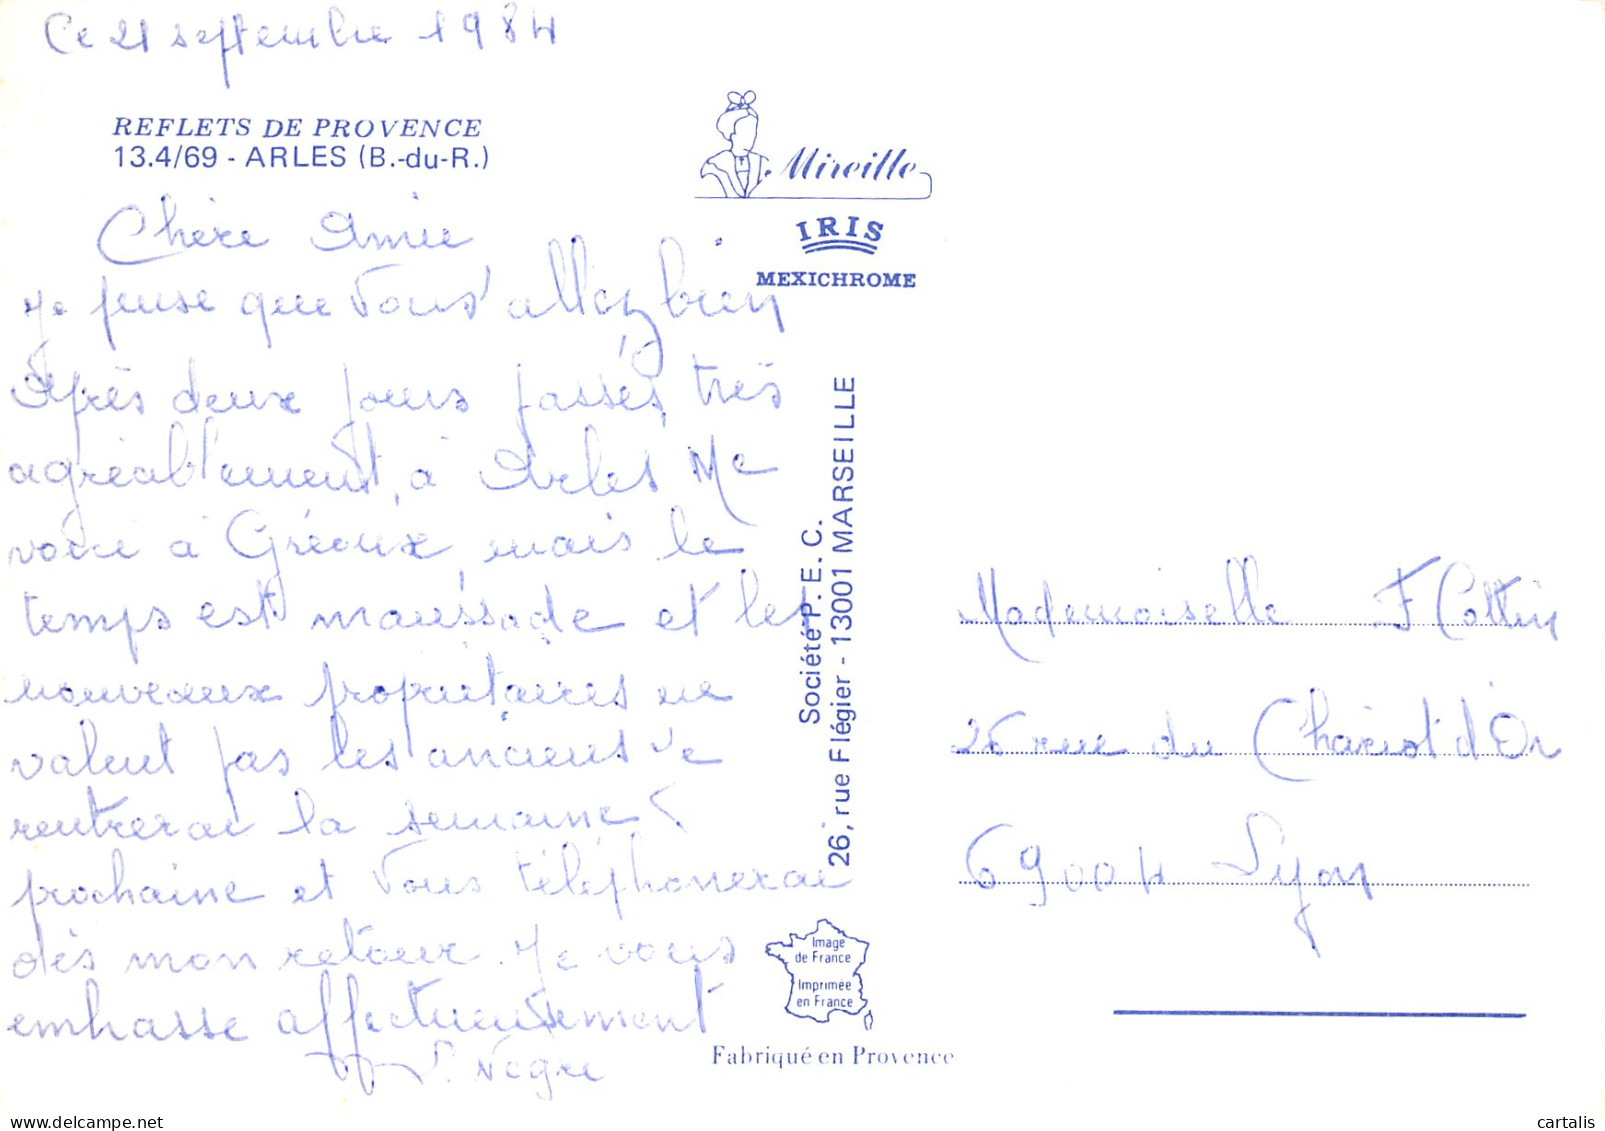 Ce 21 septembre 1984
REFLETS DE PROVENCE
13.4/69 - ARLES (B.-du-R.)
Chère Amie
Je pense que Vous allez bien
Après deux jours passés, très
agréablement, à Arles Me
voici à Gréoux, mais le
temps est maussade et les
nouveaux propriétaires ne
valent pas les anciens Je
rentrerai la semaine
prochaine et Vous téléphonerai
dès mon retour. Je vous
embrasse affectueusement
Negre
Mireille
IRIS
MEXICHROME
Société P. E. C.
26, rue Flégier - 13001 MARSEILLE
Image
de France
Imprimée
en France
Fabriqué en Provence
Mademoiselle F Cottin
26 rue du Chariot d'Or
69004 Lyon
cartalis
https://www.delcampe.net